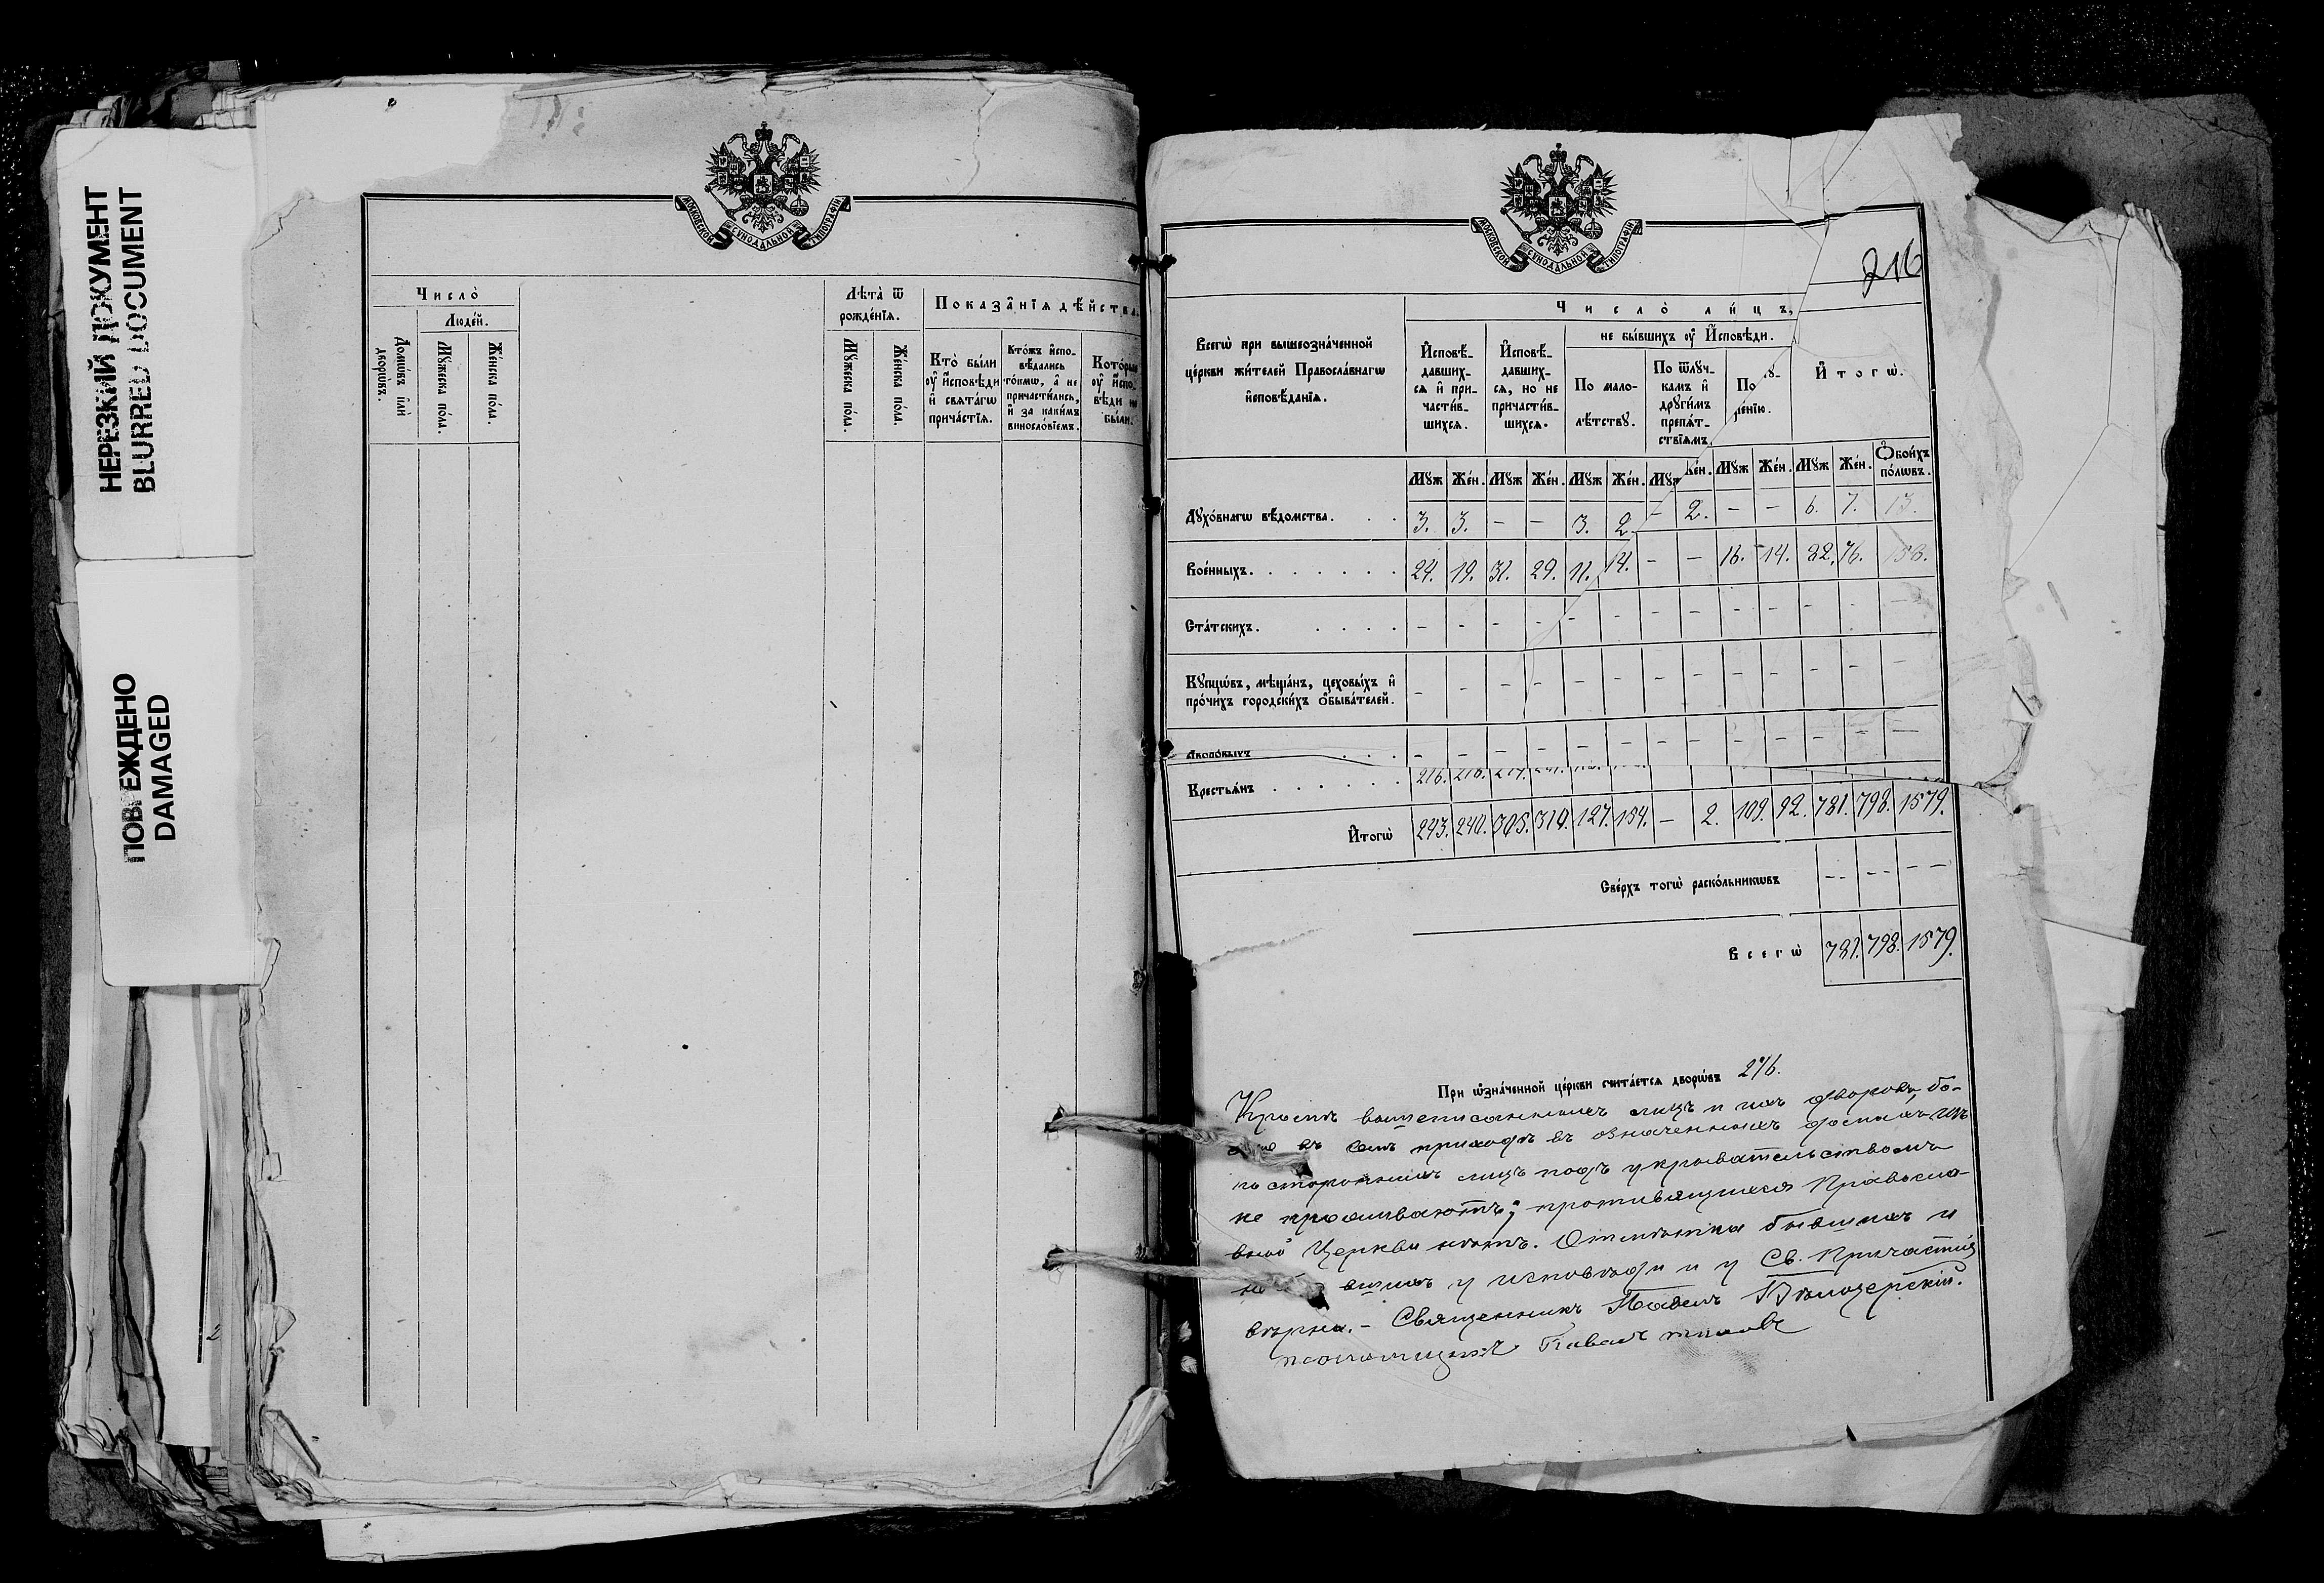 НЕРЕЗКИЙ ДОКУМЕНТ
BLURRED DOCUMENT
ПОВРЕЖДЕНО
DAMAGED
МОСКОВСКОЙ СѴНОДАЛЬНОЙ ТИПОГРАФІИ
Число̀
Люде́й.
Домѡ́въ и҆лѝ дворѡ́въ.
Мꙋ́жеска по́ла.
Же́нска по́ла.
Лѣта̀ ѿ рожде́нїѧ.
Мꙋ́жеска по́ла.
Же́нска по́ла.
Показа́нїѧ дѣ́йства
Кто̀ бы́ли ᲂу҆ и҆́сповѣди и҆ свѧта́гѡ прича́стїѧ.
Кто́жъ и҆спо- вѣ́дались то́кмѡ, а҆ не причасти́лись, и҆ за каки́мъ винослові́емъ.
Кото́рые ᲂу҆ и҆́спо- вѣди не бы́ли.
МОСКОВСКОЙ СѴНОДАЛЬНОЙ ТИПОГРАФІИ
216
Всегѡ̀ при вышеозна́ченной
це́ркви жи́телей Правосла́внагѡ
и҆сповѣ́данїѧ.
Число̀ ли́цъ,
И҆сповѣ́- давших- сѧ и҆ при- части́в- шихсѧ.
И҆сповѣ́- давших- сѧ, но не причасти́в- шихсѧ.
не бы́вшихъ ᲂу҆ И҆́сповѣди.
По мало- лѣ́тствꙋ.
По ѿлꙋч- камъ и҆ дрꙋги́мъ препѧ́т- ствїѧмъ.
По
И҆тогѡ̀.
Мꙋж Же́н. Мꙋж Же́н. Мꙋж Же́н. Мꙋж Же́н. Мꙋж Же́н. Мꙋж Же́н. Ѻ҆бои́хъ по́лѡвъ.
Дꙋхо́внагѡ вѣ́домства. 3. 3. – – 3. 2. – 2. – – 6. 7. 13.
Вое́нныхъ. 24. 19. 31. 29. 11. 14. – – 16. 14. 82. 76. 158.
Ста́тскихъ. – – – – – – – – – – – – –
Кꙋпцѡ́въ, мѣща́нъ, цеховы́хъ и҆
про́чихъ городски́хъ ѻ҆быва́телей. – – – – – – – – – – – – –
Дворо́выхъ – – – – – – – – – – – – –
Крестьѧ́нъ 216. 218.
И҆тогѡ̀ 243. 240. 305. 319. 127. 154. – 2. 109. 92. 781. 798. 1579.
Све́рхъ тогѡ̀ раско́льникѡвъ – – –
Всегѡ̀ 781. 798. 1579.
При ѡ҆зна́ченной це́ркви счита́етсѧ дворѡ́въ 216.
Кромѣ вышеписанныхъ лицъ и ихъ дворовъ, бо-
въ семъ приходѣ въ означенныхъ домахъ
постороннихъ лицъ подъ укрывательствомъ
не проживаютъ; противящихся Правосла-
вной Церкви нѣтъ. Отмѣтка бывшихъ и
у исповѣди и у Св. Причастія
вѣрна. – Священникъ Павелъ Бѣлозерскій.
псаломщикъ